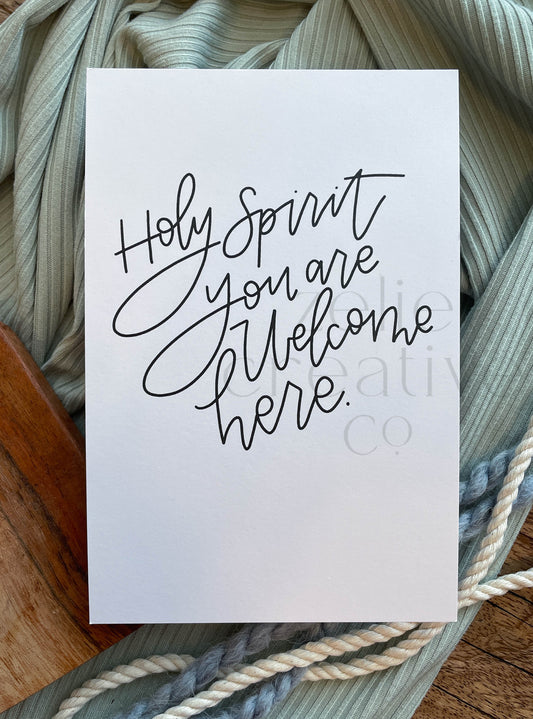 Holy Spirit
you are
Welcome
here.
zelie
creative
co